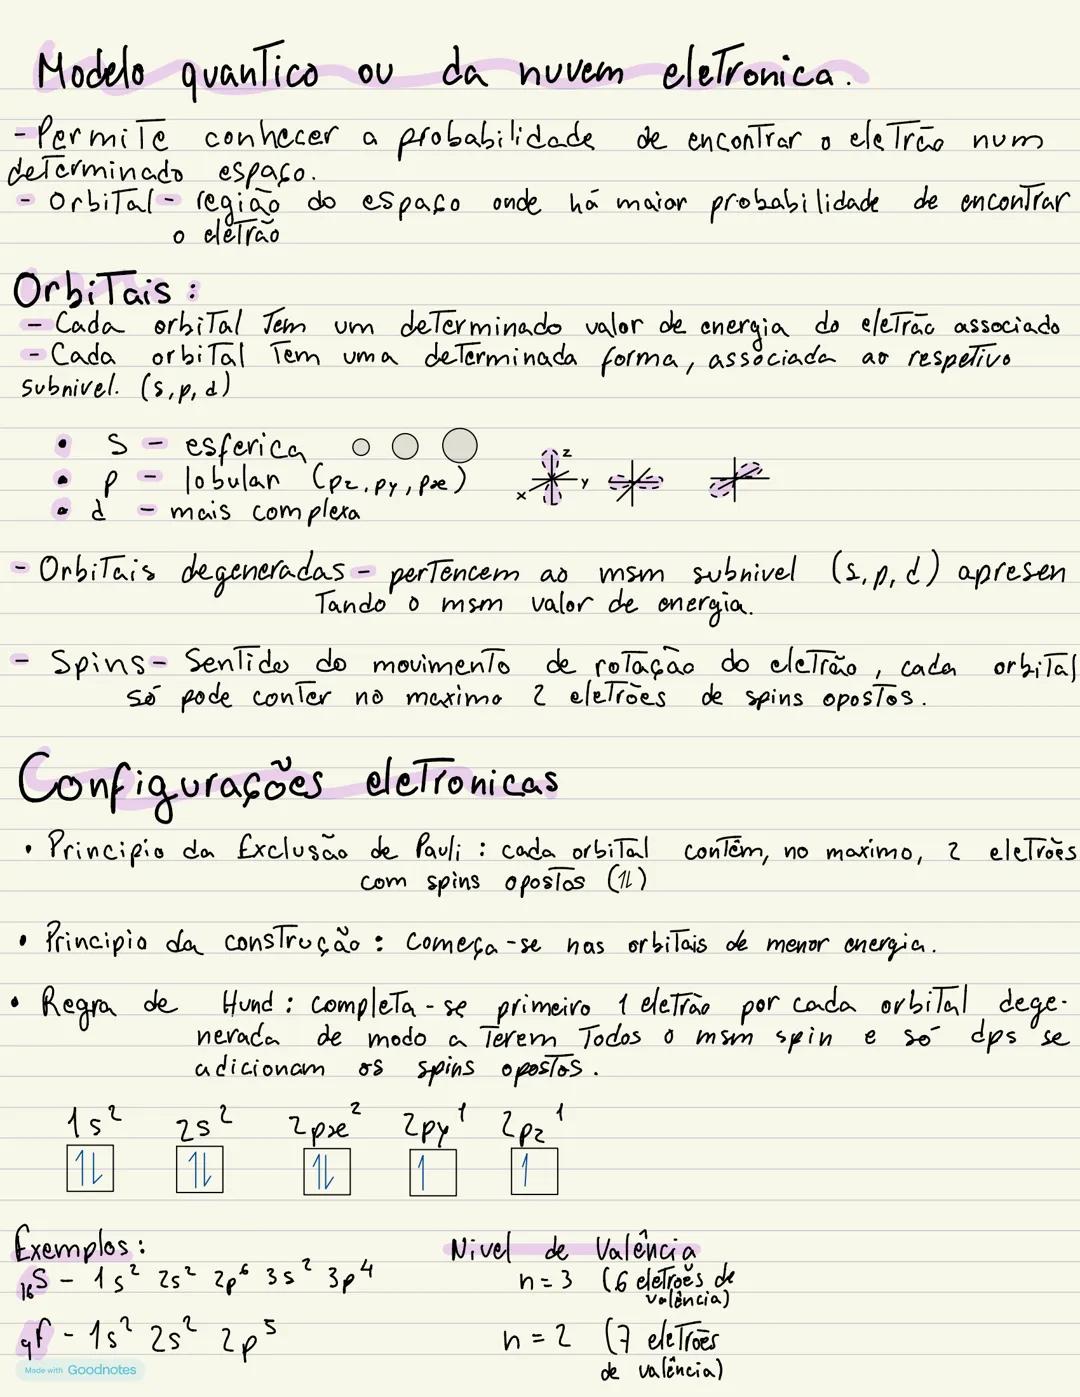 Modelo quantico ou da nuvem eletronica.
- Permite conhecer a probabilidade de encontrar o eletrão num
determinado espaço.
- Orbital - região do espaço onde há maior probabilidade de encontrar
o eletrão
Orbitais :
- Cada orbital Tem um determinado valor de energia do eletrão associado
- Cada orbital Tem uma determinada forma, associada ao respetivo
subnivel. (s, p, d)
• S - esferica
• p - lobular (pz, py, px)
• d - mais complexa
z
y
x
- Orbitais degeneradas - pertencem ao msm subnivel (s, p, d) apresen
Tando o msm valor de energia.
- Spins - Sentido do movimento de rotação do eletrão, cada orbital
só pode conter no maximo 2 eletrões de spins opostos.
Configurações eletronicas
• Principio da Exclusão de Pauli : cada orbital contêm, no maximo, 2 eletrões
com spins opostos (↿⇂)
• Principio da construção : Começa-se nas orbitais de menor energia.
• Regra de Hund : completa-se primeiro 1 eletrão por cada orbital dege-
nerada de modo a Terem Todos o msm spin e só dps se
adicionam os spins opostos.
1s² 2s² 2px² 2py¹ 2pz¹
↿⇂ ↿⇂ ↿⇂ ↿ ↿
Exemplos : Nivel de Valência
₁₆S - 1s² 2s² 2p⁶ 3s² 3p⁴ n = 3 (6 eletrões de
valência)
₉F - 1s² 2s² 2p⁵ n = 2 (7 eletrões
de valência)
Made with Goodnotes